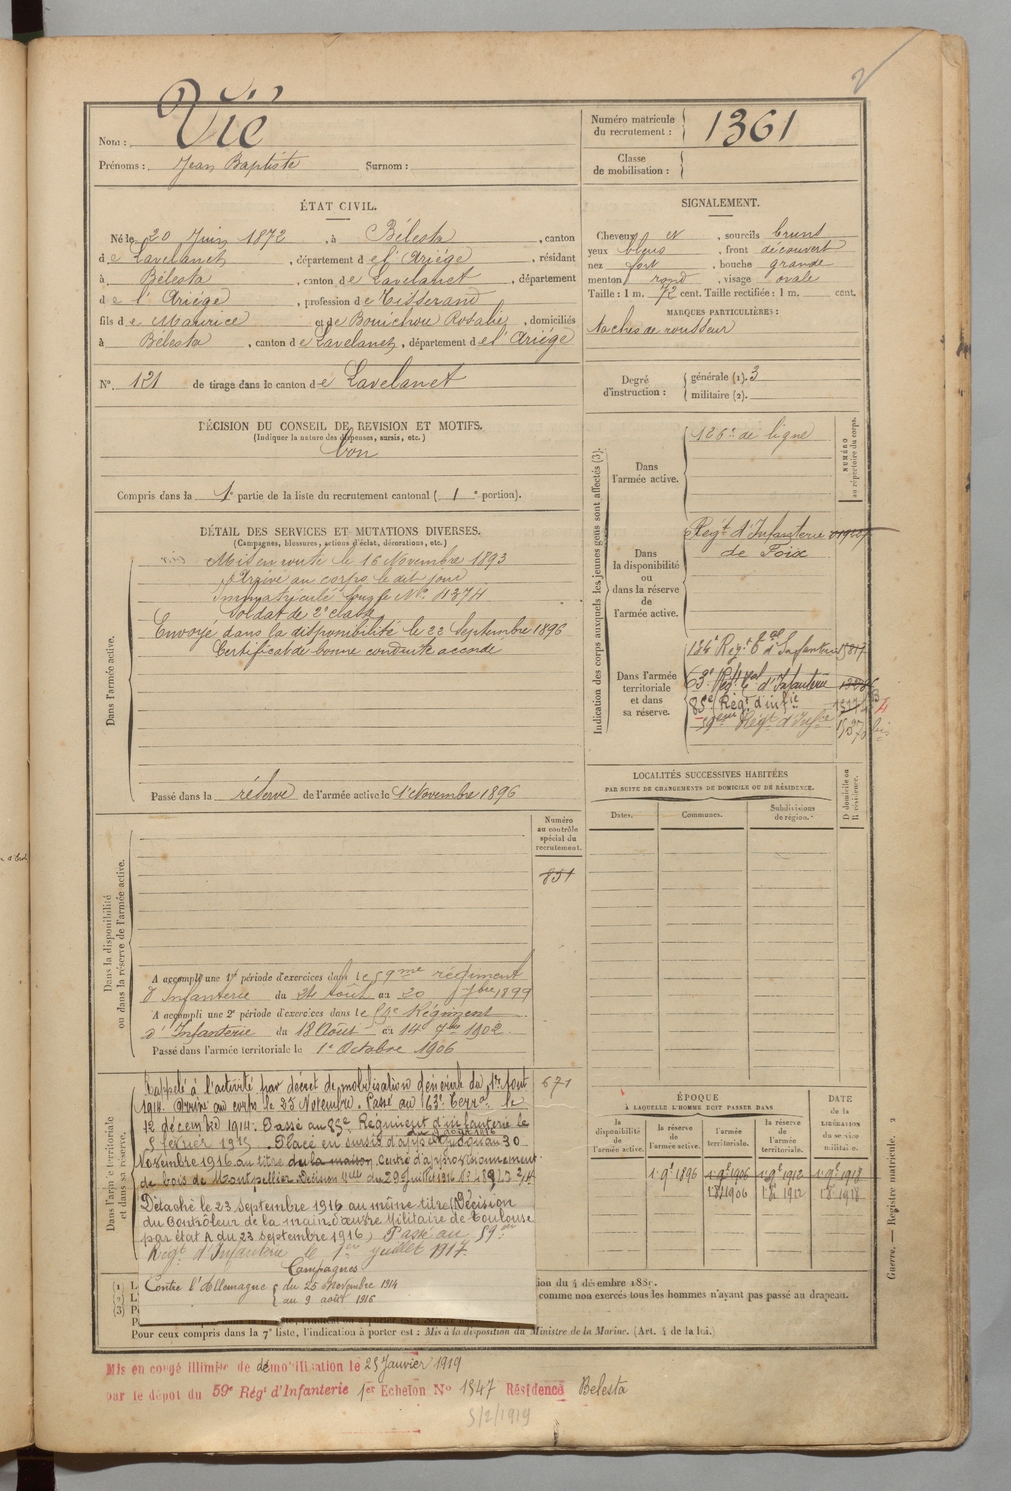 2
Nom : Vié
Prénoms : Jean Baptiste Surnom :
Numéro matricule du recrutement : 1361
Classe de mobilisation :
ÉTAT CIVIL.
Né le 20 Juin 1872, à Bélesta, canton
de Lavelanet, département de l'Ariége, résidant
à Bélesta, canton de Lavelanet, département
de l'Ariége, profession de Tisserand
fils de Maurice et de Bouichou Rosalie, domiciliés
à Bélesta, canton de Lavelanet, département de l'Ariége
N° 121 de tirage dans le canton de Lavelanet
SIGNALEMENT.
Cheveux et, sourcils bruns
yeux bleus, front découvert
nez fort, bouche grande
menton rond, visage ovale
Taille : 1 m. 72 cent. Taille rectifiée : 1 m. cent.
MARQUES PARTICULIÈRES :
taches de rousseur
Degré d'instruction : générale (1). 3
militaire (2).
DÉCISION DU CONSEIL DE REVISION ET MOTIFS.
(Indiquer la nature des dispenses, sursis, etc.)
bon
Compris dans la 1e partie de la liste du recrutement cantonal (1e portion).
DÉTAIL DES SERVICES ET MUTATIONS DIVERSES.
(Campagnes, blessures, actions d'éclat, décorations, etc.)
Dans l'armée active.
Mis en route le 16 Novembre 1893
Arrivé au corps le dit jour
Immatriculé sous le N° 4374
Soldat de 2e classe
Envoyé dans la disponibilité le 22 Septembre 1896
Certificat de bonne conduite accordé
Passé dans la réserve de l'armée active le 1 Novembre 1896
Indication des corps auxquels les jeunes gens sont affectés (3).
NUMÉRO au répertoire du corps.
Dans l'armée active.
126e de ligne
Dans la disponibilité ou dans la réserve de l'armée active.
Régt d'Infanterie
de Foix
Dans l'armée territoriale et dans sa réserve.
Régt d'Infanterie
63e d'Infanterie
85e Régt d'infie
Régt d'Infie
LOCALITÉS SUCCESSIVES HABITÉES
PAR SUITE DE CHANGEMENTS DE DOMICILE OU DE RÉSIDENCE.
Dates. Communes. Subdivisions de région. D domicile ou R résidence.
Numéro au contrôle spécial du recrutement.
851
Dans la disponibilité ou dans la réserve de l'armée active.
A accompli une 1re période d'exercices dans le 59me régiment
d'Infanterie du 24 Août au 20 7bre 1899
A accompli une 2e période d'exercices dans le 59e Régiment
d'Infanterie du 18 Août au 14 7bre 1902
Passé dans l'armée territoriale le 1e Octobre 1906
671
Dans l'armée territoriale et dans sa réserve.
Rappelé à l'activité par décret de mobilisation générale du 1er Août
1914. Arrivé au corps le 25 Novembre. Passé au 63e Terral le
12 décembre 1914. Passé au 85e Régiment d'infanterie le
5 février 1915. Placé en sursis d'appel jusqu'au 30
Novembre 1916 au titre de la maison Centre d'approvisionnement
de bois de Montpellier. Décision du 29 juillet 1916
Détaché le 23 septembre 1916 au même titre (Décision
du Contrôleur de la main d'œuvre Militaire de Toulouse
par état A du 23 septembre 1916) Passé au 59e
Régt d'Infanterie le 1er juillet 1917
Campagnes
Contre l'Allemagne du 25 Novembre 1914
au 9 août 1916
ÉPOQUE
À LAQUELLE L'HOMME DOIT PASSER DANS
la disponibilité de l'armée active. la réserve de l'armée active. l'armée territoriale. la réserve de l'armée territoriale.
DATE de la LIBÉRATION du service militaire.
1 9e 1896 1 9e 1906 1 9e 1912 1 9e 1918
1 8e 1906 1 8e 1912 1 8e 1918
(1) L
(2) L
(3) P
comme non exercés tous les hommes n'ayant pas passé au drapeau.
Pour ceux compris dans la 7e liste, l'indication à porter est : Mis à la disposition du Ministre de la Marine. (Art. 4 de la loi.)
Guerre. — Registre matricule. 2
Mis en congé illimité de démobilisation le 25 Janvier 1919
par le dépôt du 59e Régt d'Infanterie 1er Echelon N° 1547 Résidence Bélesta
5/2/1919